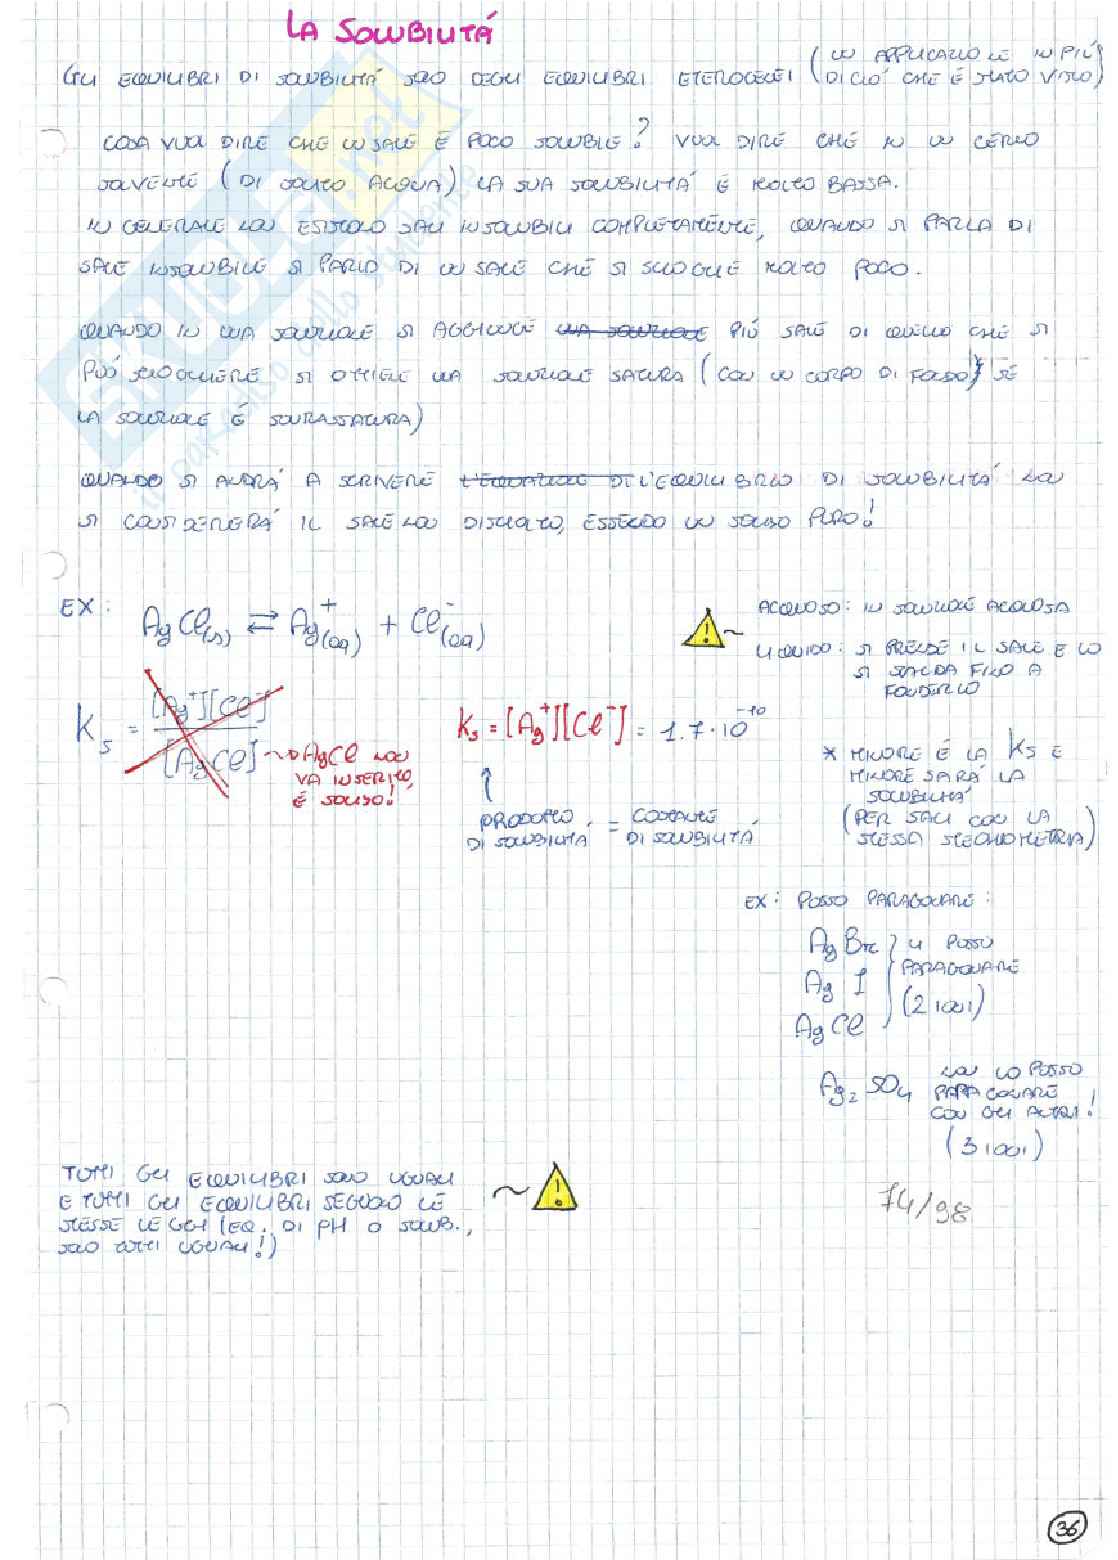 LA SOLUBILITÁ
GLI EQUILIBRI DI SOLUBILITÁ SONO DEGLI EQUILIBRI ETEROGENEI (UN APPLICAZIONE IN PIÚ
DI CIÓ CHE É STATO VISTO)
COSA VUOL DIRE CHE UN SALE É POCO SOLUBILE? VUOL DIRE CHE IN UN CERTO
SOLVENTE (DI SOLITO ACQUA) LA SUA SOLUBILITÁ É MOLTO BASSA.
IN GENERALE NON ESISTONO SALI INSOLUBILI COMPLETAMENTE, QUANDO SI PARLA DI
SALE INSOLUBILE SI PARLA DI UN SALE CHE SI SCIOGLIE MOLTO POCO.
QUANDO IN UNA SOLUZIONE SI AGGIUNGE UNA SOLUZIONE PIÚ SALE DI QUELLO CHE SI
PUÓ SCIOGLIERE SI OTTIENE UNA SOLUZIONE SATURA (CON UN CORPO DI FONDO) SE
LA SOLUZIONE É SOVRASSATURA)
QUANDO SI ANDRÁ A SCRIVERE L'EQUAZIONE DI L'EQUILIBRIO DI SOLUBILITÁ NON
SI CONSIDERERÁ IL SALE NON DISCIOLTO, ESSENDO UN SOLIDO PURO!
EX: AgCl(s) ⇄ Ag⁺(aq) + Cl⁻(aq)
ACQUOSO: IN SOLUZIONE ACQUOSA
LIQUIDO: SI PRENDE IL SALE E LO
SI SCALDA FINO A
FONDERLO
Ks = [Ag⁺][Cl⁻] / [AgCl] ~ AgCl NON
VA INSERITO,
É SOLIDO!
Ks = [Ag⁺][Cl⁻] = 1.7·10⁻¹⁰
↑
PRODOTTO = COSTANTE
DI SOLUBILITÁ DI SOLUBILITÁ
* MINORE É LA Ks E
MINORE SARÁ LA
SOLUBILITÁ
(PER SALI CON LA
STESSA STECHIOMETRIA)
EX: POSSO PARAGONARE:
AgBr
AgI
AgCl
} LI POSSO
PARAGONARE
(2 IONI)
Ag₂SO₄ NON LO POSSO
PARAGONARE
CON GLI ALTRI!
(3 IONI)
TUTTI GLI EQUILIBRI SONO UGUALI
E TUTTI GLI EQUILIBRI SEGUONO LE
STESSE LEGGI (EQ. DI PH O SOLUB.,
SONO TUTTI UGUALI!)
74/98
36